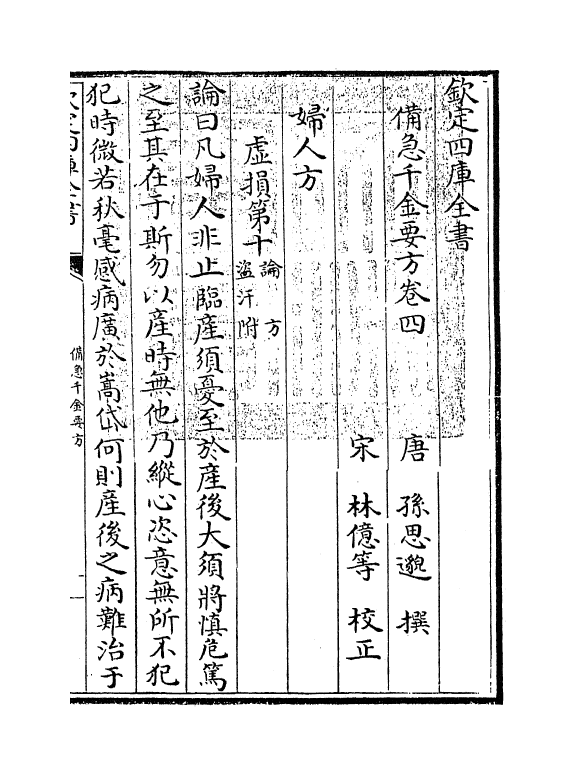 欽定四庫全書
備急千金要方卷四
唐 孫思邈 撰
宋 林億等 校正
婦人方
虛損第十論 方
盜汗附
論曰凡婦人非止臨產須憂至於產後大須將慎危篤
之至其在于斯勿以產時無他乃縱心恣意無所不犯
犯時微若秋毫感病廣於嵩岱何則產後之病難治于
欽定四庫全書
備急千金要方
一